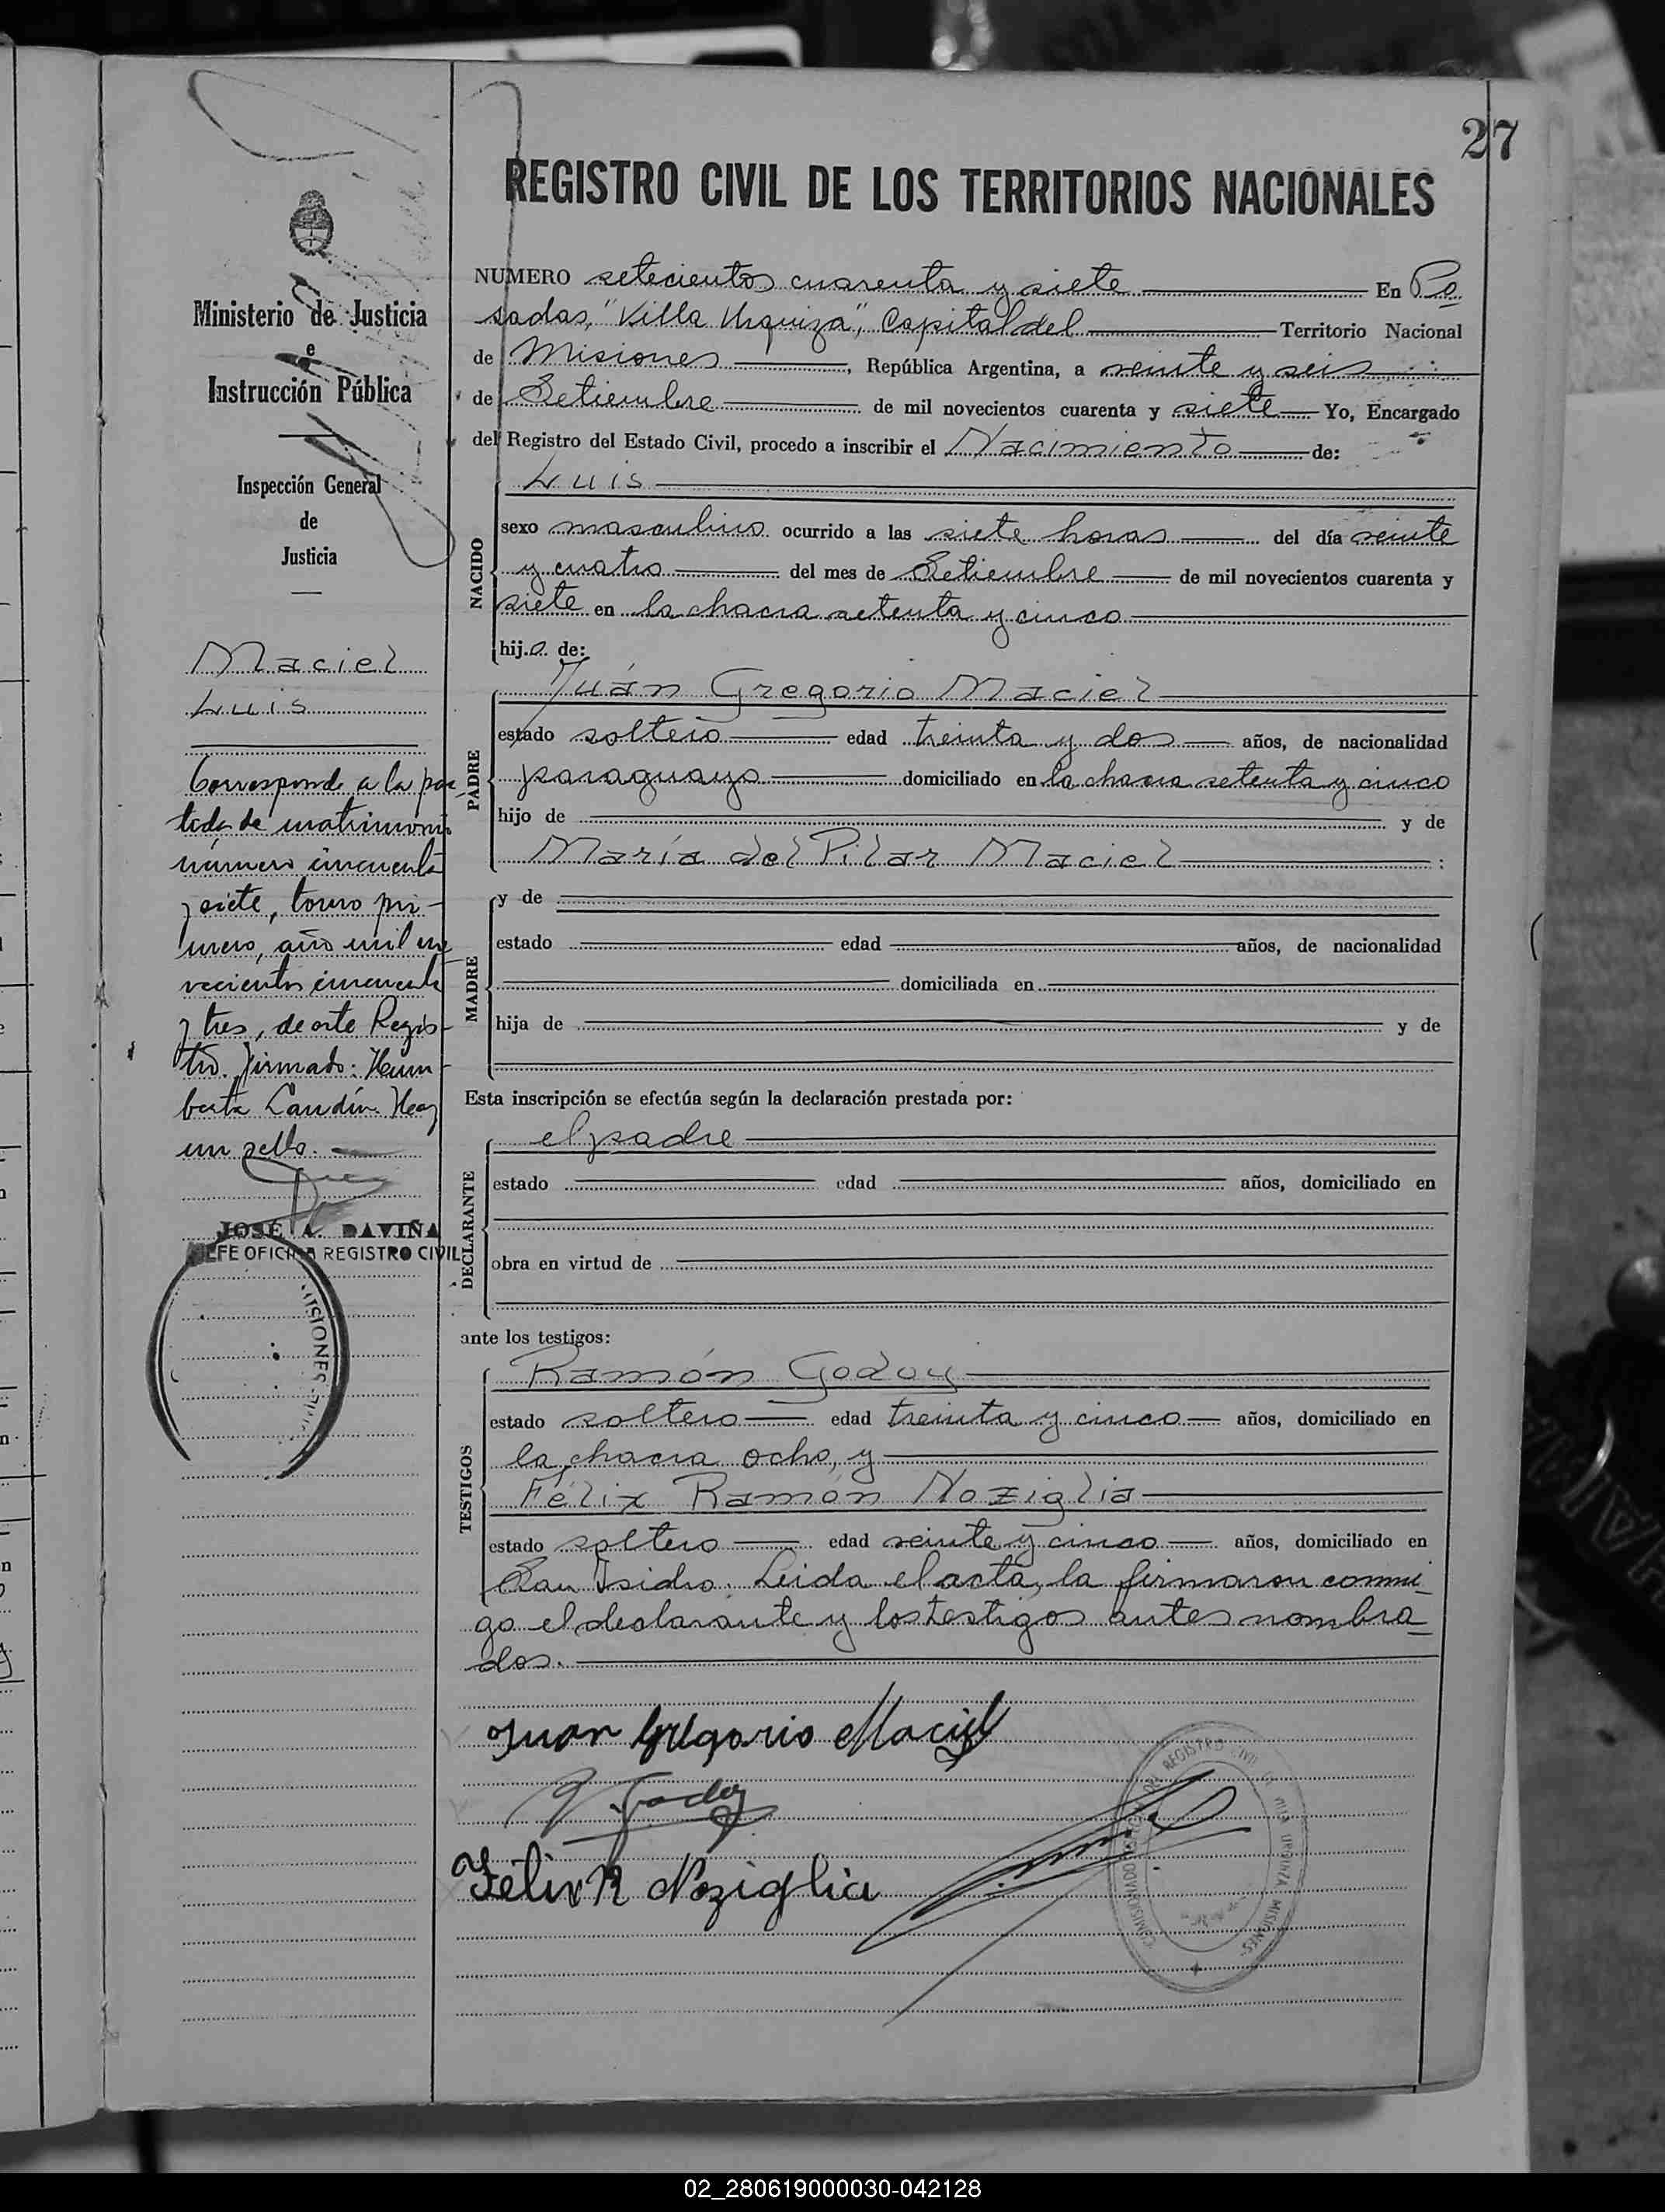 27
REGISTRO CIVIL DE LOS TERRITORIOS NACIONALES
Ministerio de Justicia
e
Instrucción Pública
Inspección General
de
Justicia
Maciel
Luis
Corresponde a la par
tida de matrimonio
número cincuenta
y siete, tomo pri-
mero, año mil no
vecientos cincuenta
y tres, de este Regis-
tro. Firmado: Hum-
berto Landín. Hay
un sello.
JOSE A. DAVIÑA
JEFE OFICINA REGISTRO CIVIL
MISIONES
NUMERO setecientos cuarenta y siete En Po
sadas, "Villa Urquiza", Capital del Territorio Nacional
de Misiones, República Argentina, a veinte y seis
de Setiembre de mil novecientos cuarenta y siete Yo, Encargado
del Registro del Estado Civil, procedo a inscribir el Nacimiento de:
NACIDO
Luis
sexo masculino ocurrido a las siete horas del día veinte
y cuatro del mes de Setiembre de mil novecientos cuarenta y
siete en la chacra setenta y cinco
hijo de:
PADRE
Juán Gregorio Maciel
estado soltero edad treinta y dos años, de nacionalidad
paraguayo domiciliado en la chacra setenta y cinco
hijo de y de
María del Pilar Maciel
MADRE
y de
estado edad años, de nacionalidad
domiciliada en
hija de y de
Esta inscripción se efectúa según la declaración prestada por:
DECLARANTE
el padre
estado edad años, domiciliado en
obra en virtud de
ante los testigos:
TESTIGOS
Ramón Godoy
estado soltero edad treinta y cinco años, domiciliado en
la chacra ocho, y
Félix Ramón Noziglia
estado soltero edad veinte y cinco años, domiciliado en
San Isidro. Leida el acta, la firmaron conmi-
go el declarante y los testigos antes nombra-
dos.
Juan Gregorio Maciel
R. Godoy
Felix R Noziglia
REGISTRO CIVIL VILLA URQUIZA MISIONES
02_280619000030-042128